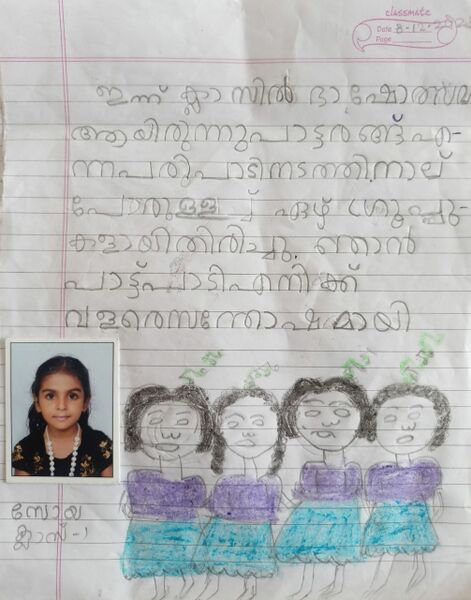 classmate
Date 8-12-202
Page
ഇന്ന് ക്ലാസിൽ ഭാഷോത്സവ
ആയിരുന്നു പാട്ടരങ്ങ് എ-
ന്ന പരിപാടി നടത്തി. നാല്
പേരുള്ള ഏഴ് ഗ്രൂപ്പു-
കളായി തിരിച്ചു. ഞാൻ
പാട്ട് പാടി എനിക്ക്
വളരെ സന്തോഷമായി
സോയ
ക്ലാസ്-1